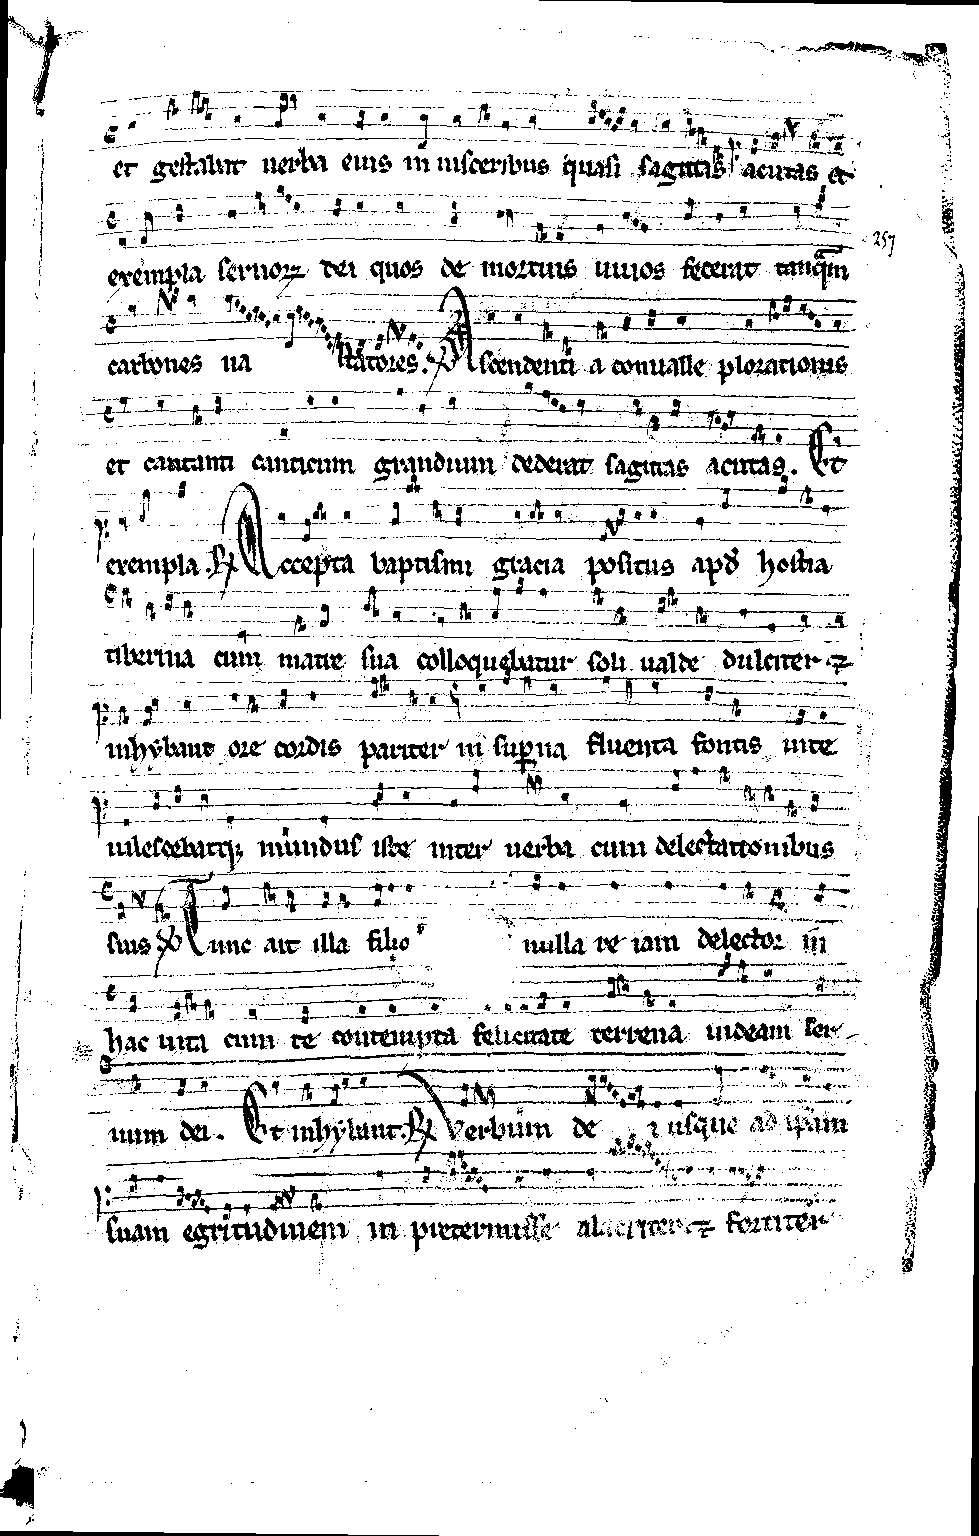 et gestabat uerba eius in uisceribus quasi sagittas acutas et
257
exempla seruorꝝ dei quos de mortuis uiuos fecerat tanq̄m
carbones ua statores. ℣ Ascendenti a conualle plorationis
et cantanti canticum graduum dederat sagittas acutas. Et
exempla. ℟ Accepta baptismi gracia positus apđ hostia
tiberina cum matre sua colloquebatur soli ualde dulciter ⁊
inhybant ore cordis pariter in suꝑna fluenta fontis uite
uilescebatqꝫ mundus iste inter uerba cum delectationibus
suis ℣ Tunc ait illa filio nulla re iam delector in
hac uita cum te contempta felicitate terrena uideam ser
uum dei. Et inhybant. ℟ Verbum de i usque ad ip̄am
suam egritudinem in pretermisse alacriter ⁊ fortiter